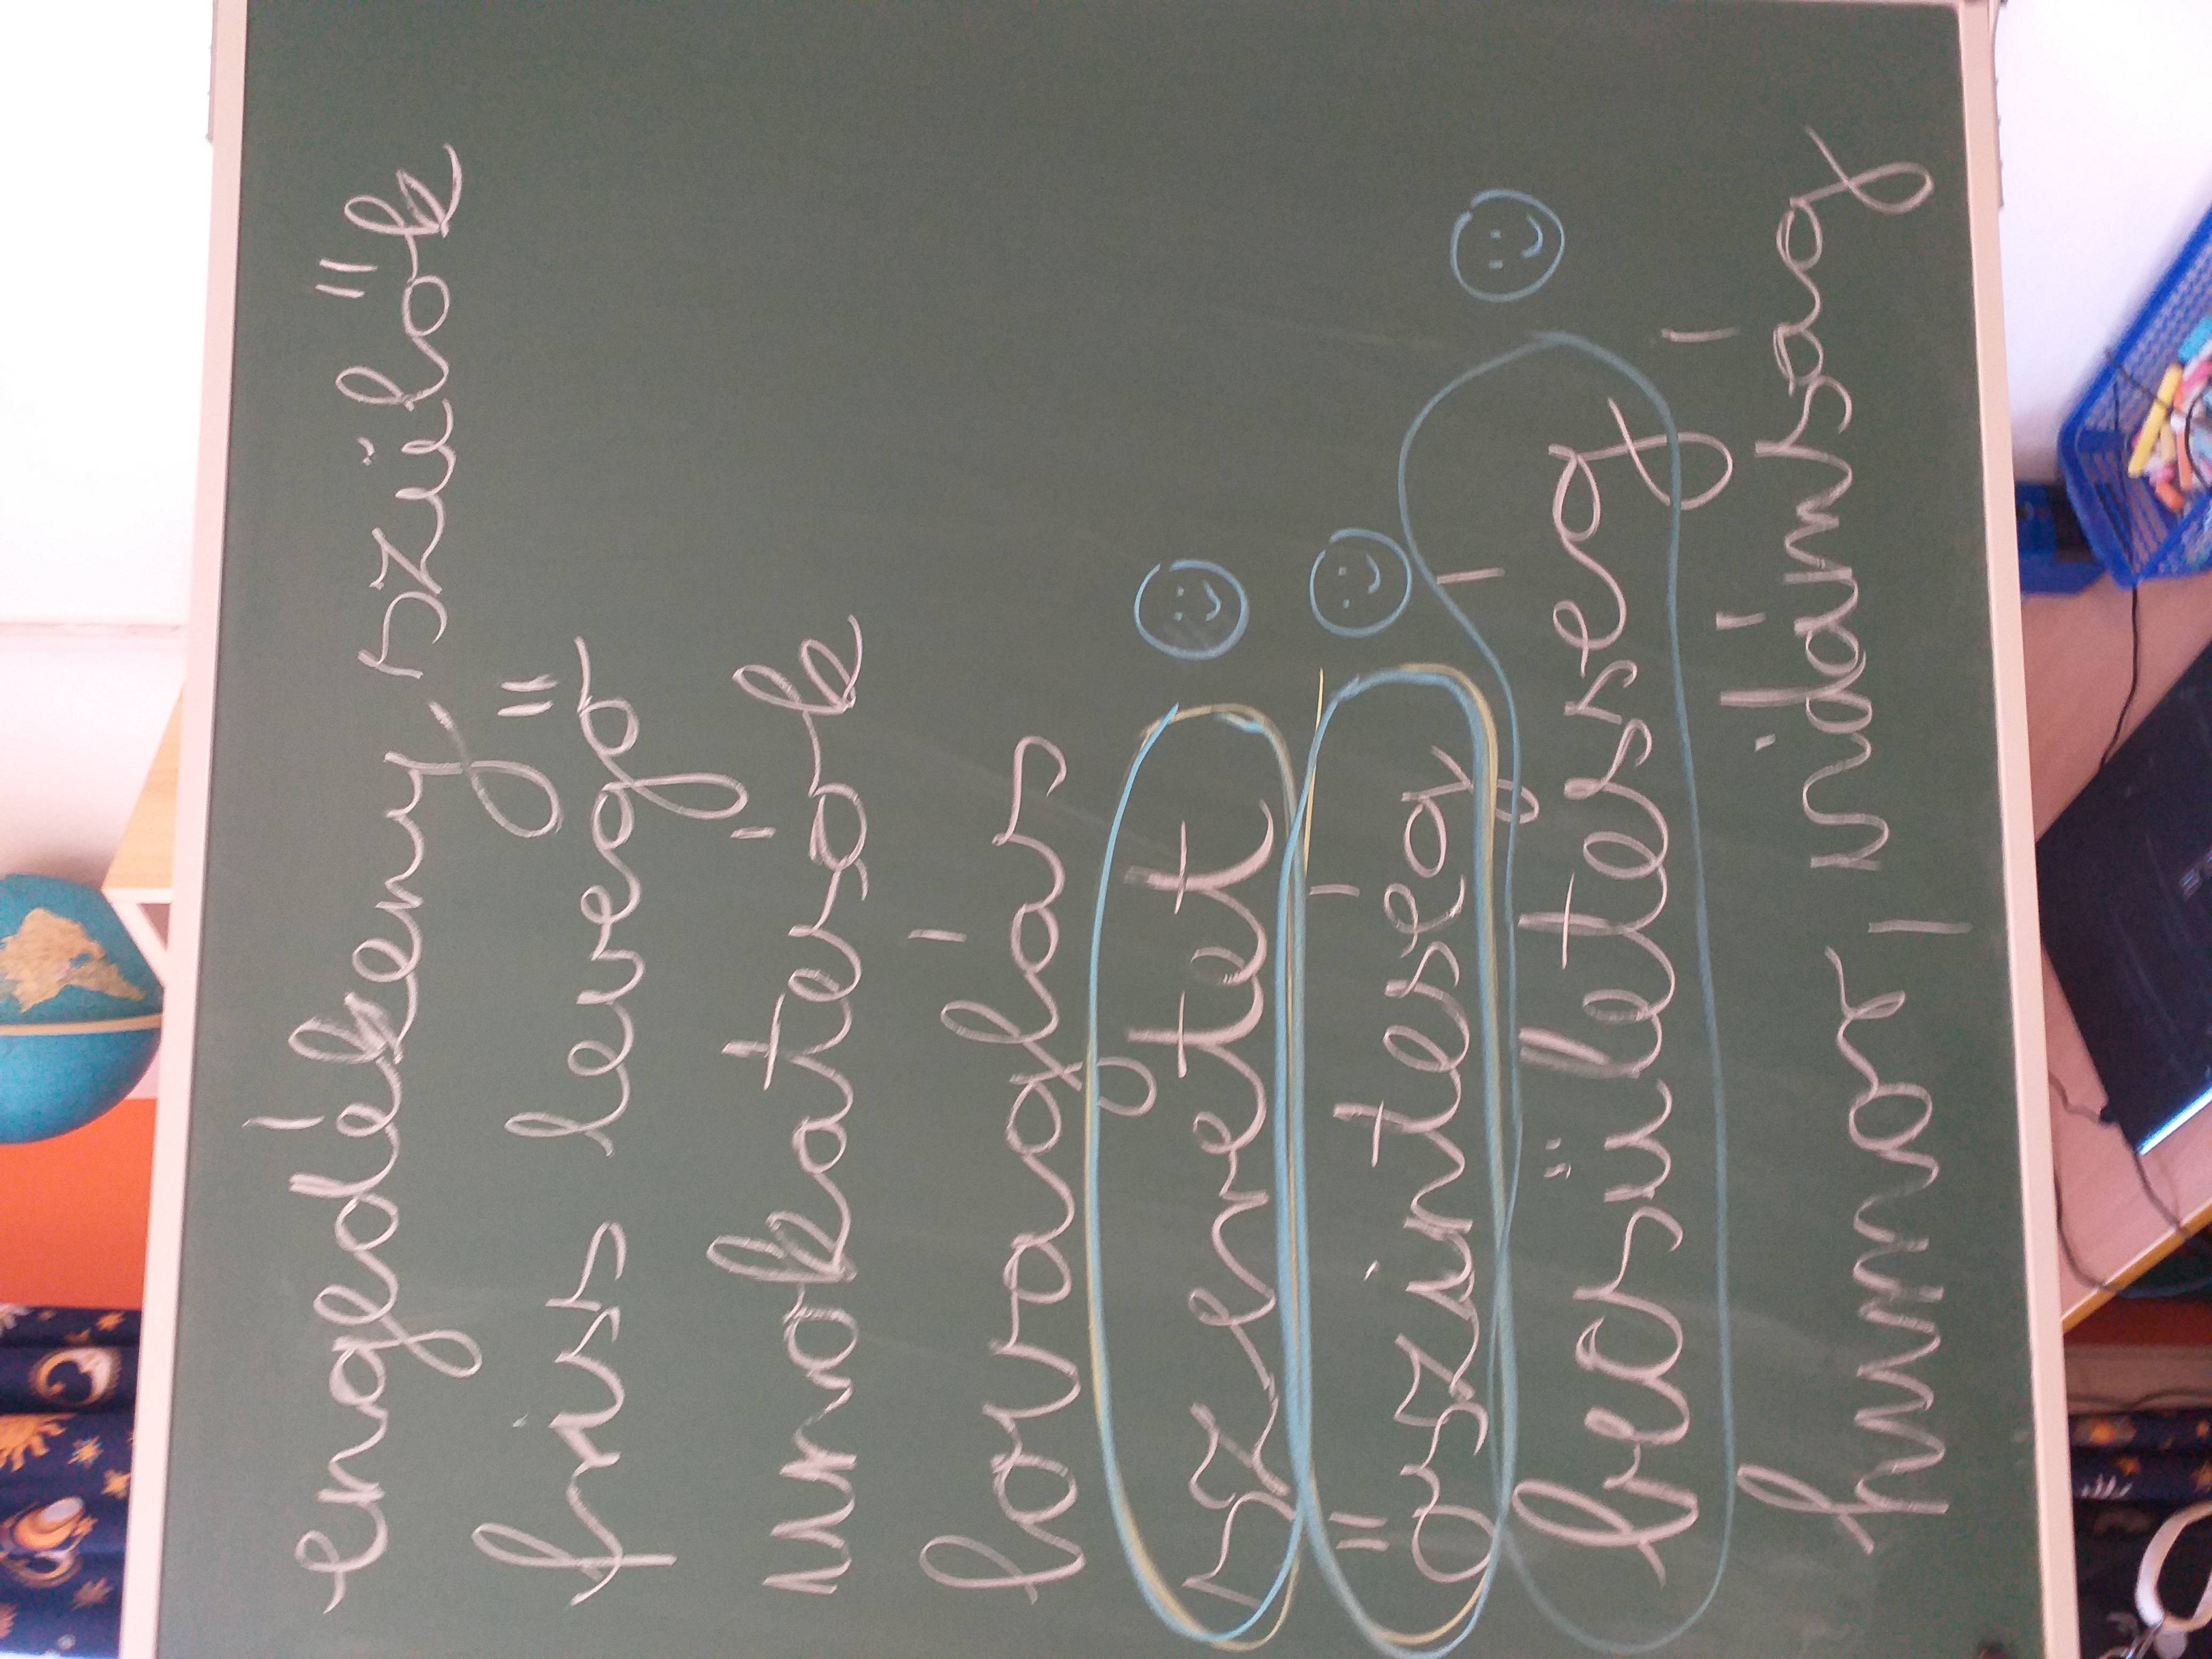 engedékeny szülők
friss levegő
unokatesók
lovaglás
szeretet
őszinteség
becsületesség
humor, vidámság